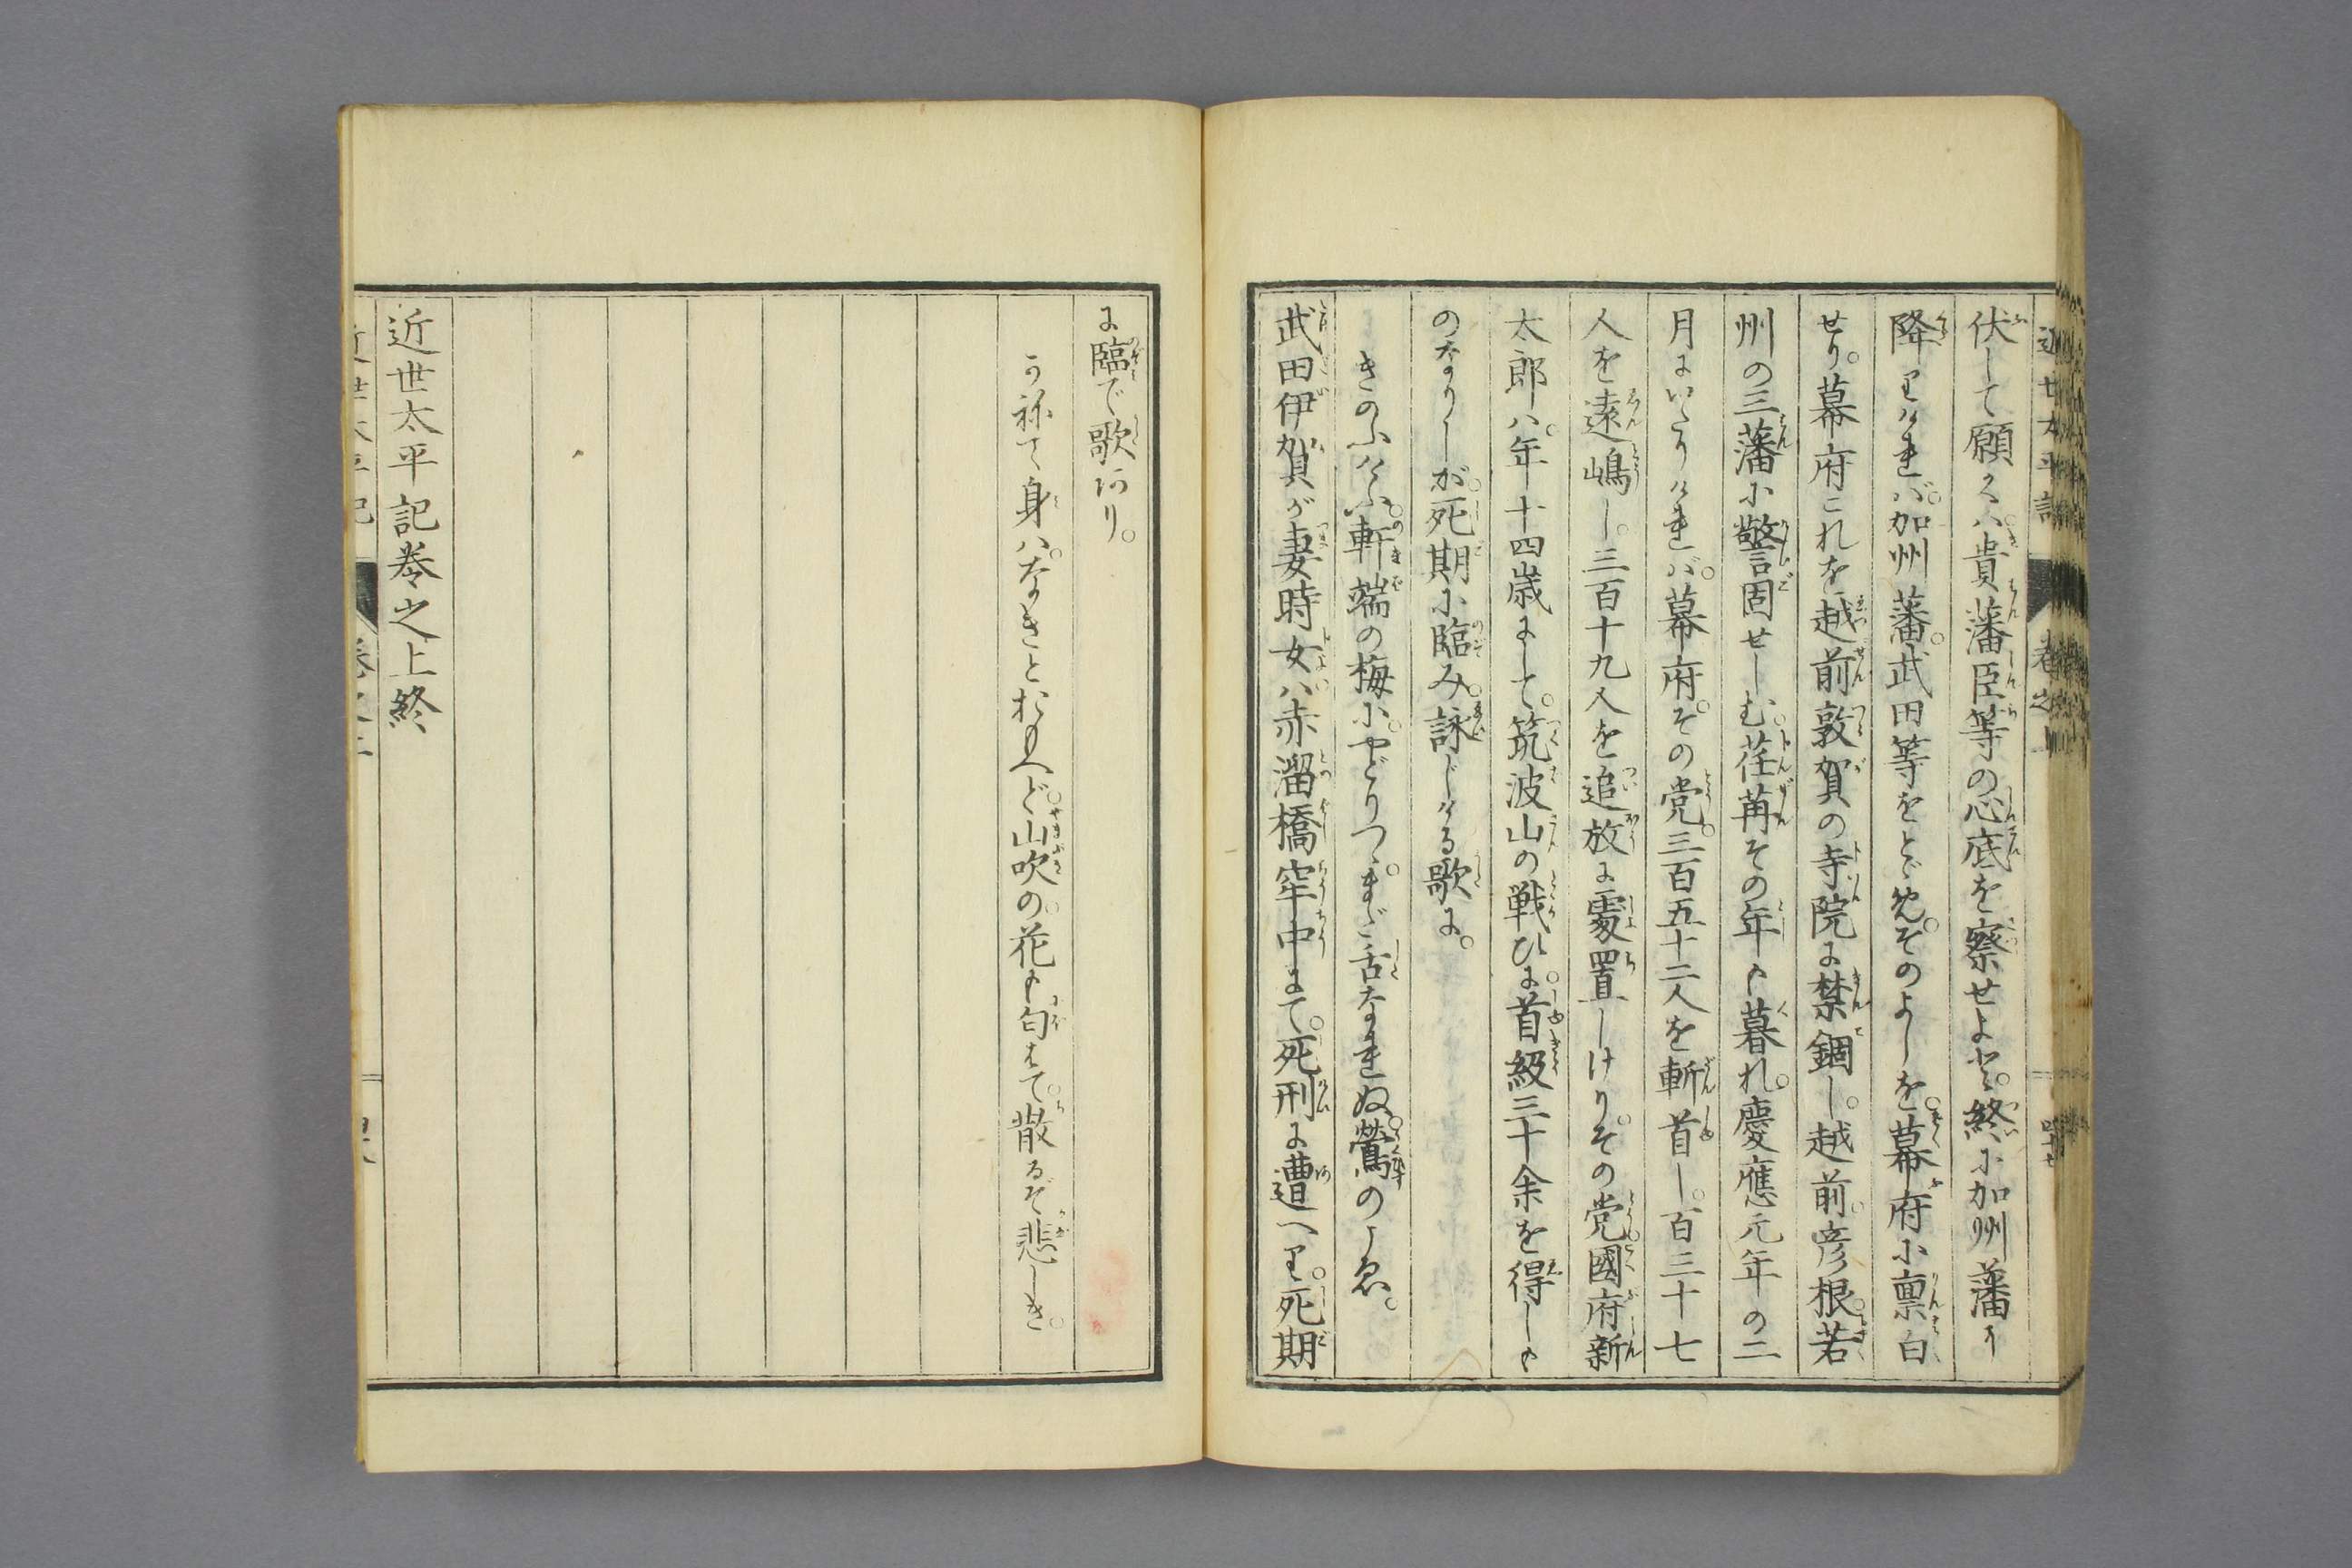 近世太平記 巻之上 四十七
伏して願くハ。貴藩臣等の心底を察せよと。終に加州藩に
降りけれバ。加州藩。武田等をとゞめ。そのよしを。幕府に稟白
せり。幕府これを越前敦賀の寺院に禁錮し。越前。彦根。若
州の三藩に警固せしむ。荏苒その年も暮れ。慶應元年の二
月にいたりけれバ。幕府。その党。三百五十二人を斬首し。百三十七
人を遠嶋し。三百十九人を追放に處置しけり。その党。國府新
太郎ハ。年十四歳にして。筑波山の戦ひに。首級三十余を得しも
のなりしが。死期に臨み。詠じける歌に。
きのふけふ。軒端の梅に。やどりつゝ。まだ舌なれぬ。鶯のこゑ。
武田伊賀が妻時女ハ。赤溜橋牢中にて。死刑に遭へり。死期
に臨で歌あり。
かねて身ハ。なきとおもへど。山吹の。花も匂はで。散るぞ悲しき。
近世太平記巻之上終
近世太平記 巻之上